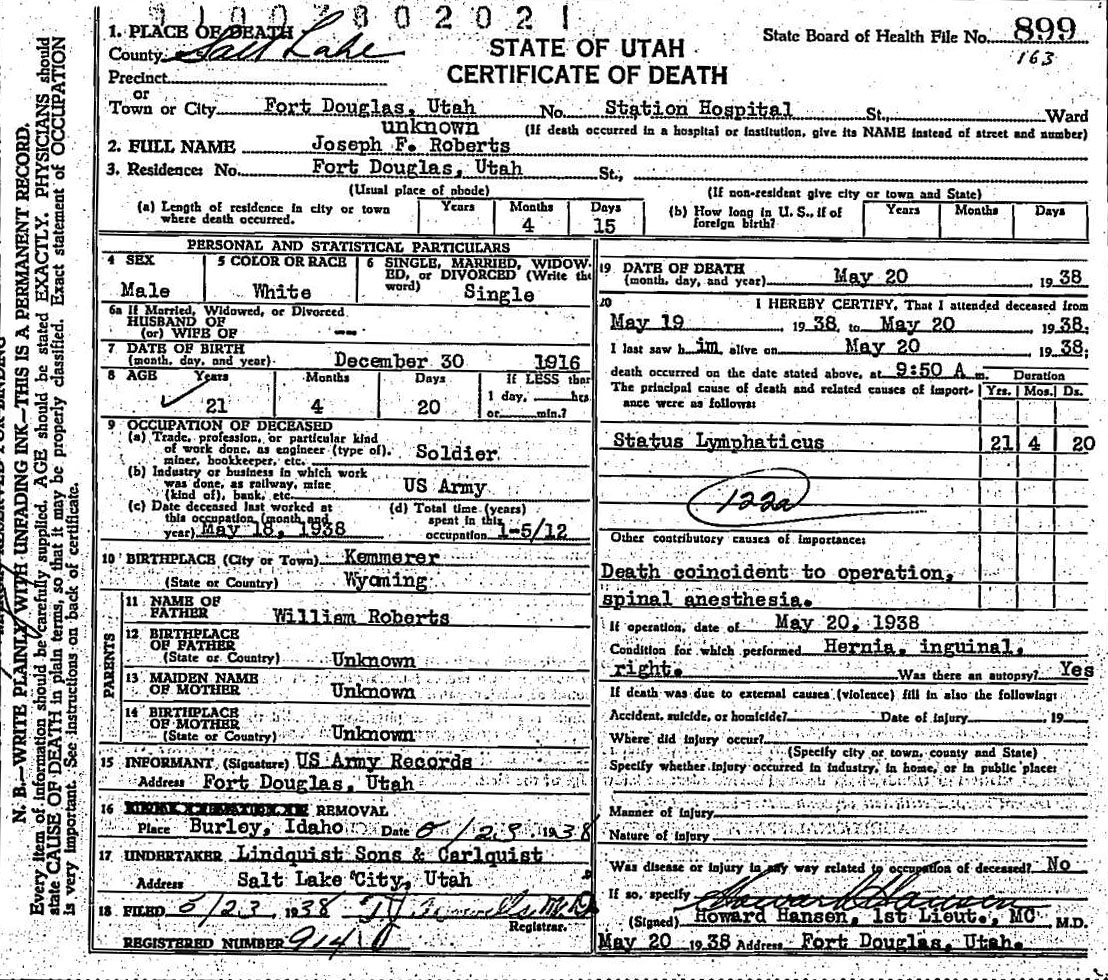 9 1 0 0 7 8 0 2 0 2 1
1. PLACE OF DEATH
County Salt Lake
STATE OF UTAH
CERTIFICATE OF DEATH
State Board of Health File No. 899
163
Precinct
or
Town or City Fort Douglas, Utah No. Station Hospital St., Ward
unknown (If death occurred in a hospital or institution, give its NAME instead of street and number)
2. FULL NAME Joseph F. Roberts
3. Residence: No. Fort Douglas, Utah St.,
(Usual place of abode) (If non-resident give city or town and State)
(a) Length of residence in city or town where death occurred. Years Months 4 Days 15
(b) How long in U. S., if of foreign birth? Years Months Days
PERSONAL AND STATISTICAL PARTICULARS
4 SEX Male
5 COLOR OR RACE White
6 SINGLE, MARRIED, WIDOWED, or DIVORCED (Write the word) Single
6a If Married, Widowed, or Divorced
HUSBAND OF
(or) WIFE OF --
7 DATE OF BIRTH
(month, day, and year) December 30 1916
8 AGE Years 21 Months 4 Days 20
If LESS than
1 day, hrs
or min.?
9 OCCUPATION OF DECEASED
(a) Trade, profession, or particular kind
of work done, as engineer (type of),
miner, bookkeeper, etc. Soldier
(b) Industry or business in which work
was done, as railway, mine
(kind of), bank, etc. US Army
(c) Date deceased last worked at
this occupation (month and
year) May 18, 1938
(d) Total time (years)
spent in this
occupation 1-5/12
10 BIRTHPLACE (City or Town) Kemmerer
(State or Country) Wyoming
PARENTS
11 NAME OF
FATHER William Roberts
12 BIRTHPLACE
OF FATHER
(State or Country) Unknown
13 MAIDEN NAME
OF MOTHER Unknown
14 BIRTHPLACE
OF MOTHER
(State or Country) Unknown
15 INFORMANT (Signature) US Army Records
Address Fort Douglas, Utah
16 REMOVAL
Place Burley, Idaho Date 5/23 1938
17 UNDERTAKER Lindquist Sons & Carlquist
Address Salt Lake City, Utah
18 FILED 5/23 1938
Registrar.
REGISTERED NUMBER 914
19 DATE OF DEATH
(month, day, and year) May 20 1938
20 I HEREBY CERTIFY, That I attended deceased from
May 19 1938, to May 20 1938;
I last saw him alive on May 20 1938;
death occurred on the date stated above, at 9:50 A m. Duration
The principal cause of death and related causes of importance were as follows: Yrs. Mos. Ds.
Status Lymphaticus 21 4 20
122a
Other contributory causes of importance:
Death coincident to operation,
spinal anesthesia.
If operation, date of May 20, 1938
Condition for which performed Hernia, inguinal,
right. Was there an autopsy? Yes
If death was due to external causes (violence) fill in also the following:
Accident, suicide, or homicide? Date of injury , 19
Where did injury occur?
(Specify city or town, county and State)
Specify whether injury occurred in industry, in home, or in public place:
Manner of injury
Nature of injury
Was disease or injury in any way related to occupation of deceased? No
If so, specify Howard Hansen
(Signed) Howard Hansen, 1st Lieut., MC M.D.
May 20 1938 Address Fort Douglas, Utah.
N. B.—WRITE PLAINLY WITH UNFADING INK—THIS IS A PERMANENT RECORD.
Every item of information should be carefully supplied. AGE should be stated EXACTLY. PHYSICIANS should
state CAUSE OF DEATH in plain terms, so that it may be properly classified. Exact statement of OCCUPATION
is very important. See instructions on back of certificate.